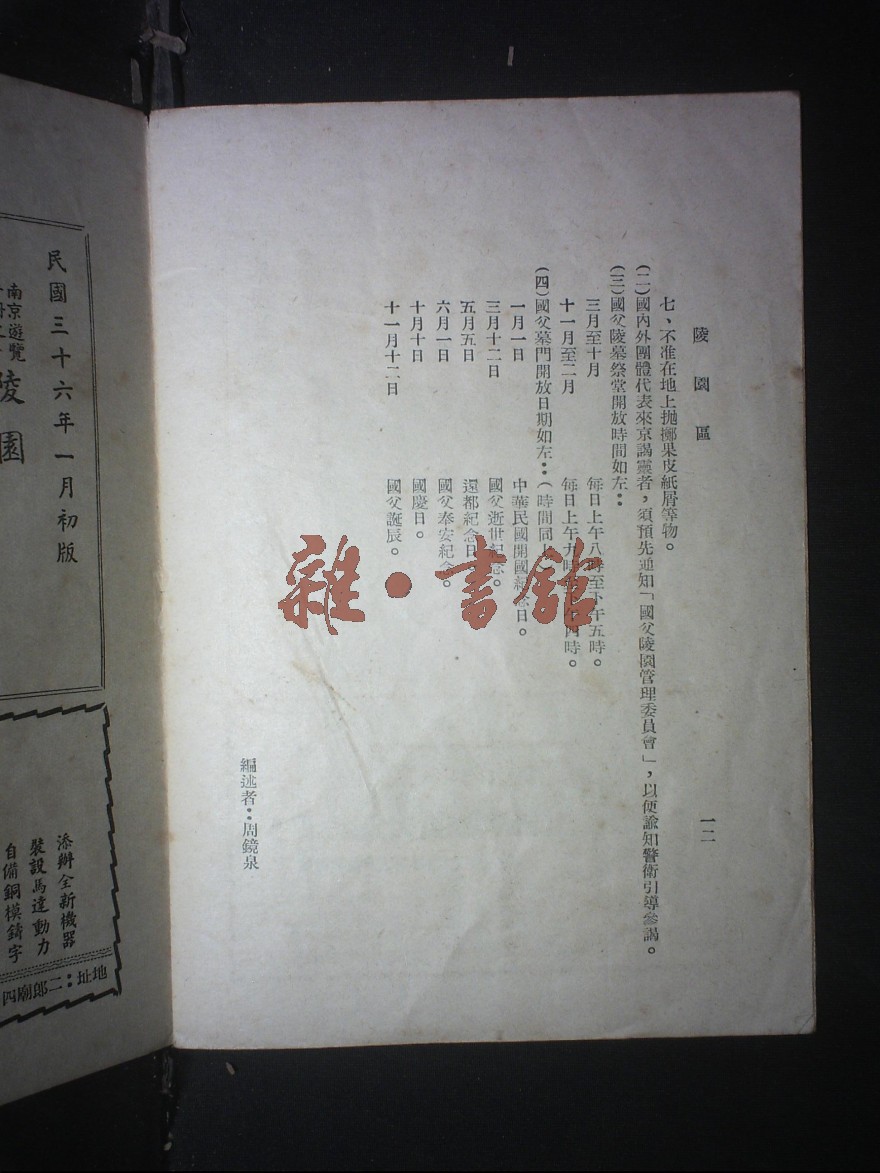 陵園區
一二
七、不准在地上拋擲果皮紙屑等物。
(二)國內外團體代表來京謁靈者,須預先通知「國父陵園管理委員會」,以便諭知警衛引導參謁。
(三)國父陵墓祭堂開放時間如左:
三月至十月 每日上午八時至下午五時。
十一月至二月 每日上午九時 午四時。
(四)國父墓門開放日期如左:(時間同
一月一日 中華民國開國紀念日。
三月十二日 國父逝世紀念。
五月五日 還都紀念日
六月一日 國父奉安紀念。
十月十日 國慶日。
十一月十二日 國父誕辰。
編述者:周鏡泉
雜·書館
民國三十六年一月初版
南京遊覽
陵園
添辦全新機器
裝設馬達動力
自備銅模鑄字
地址:二郎廟四